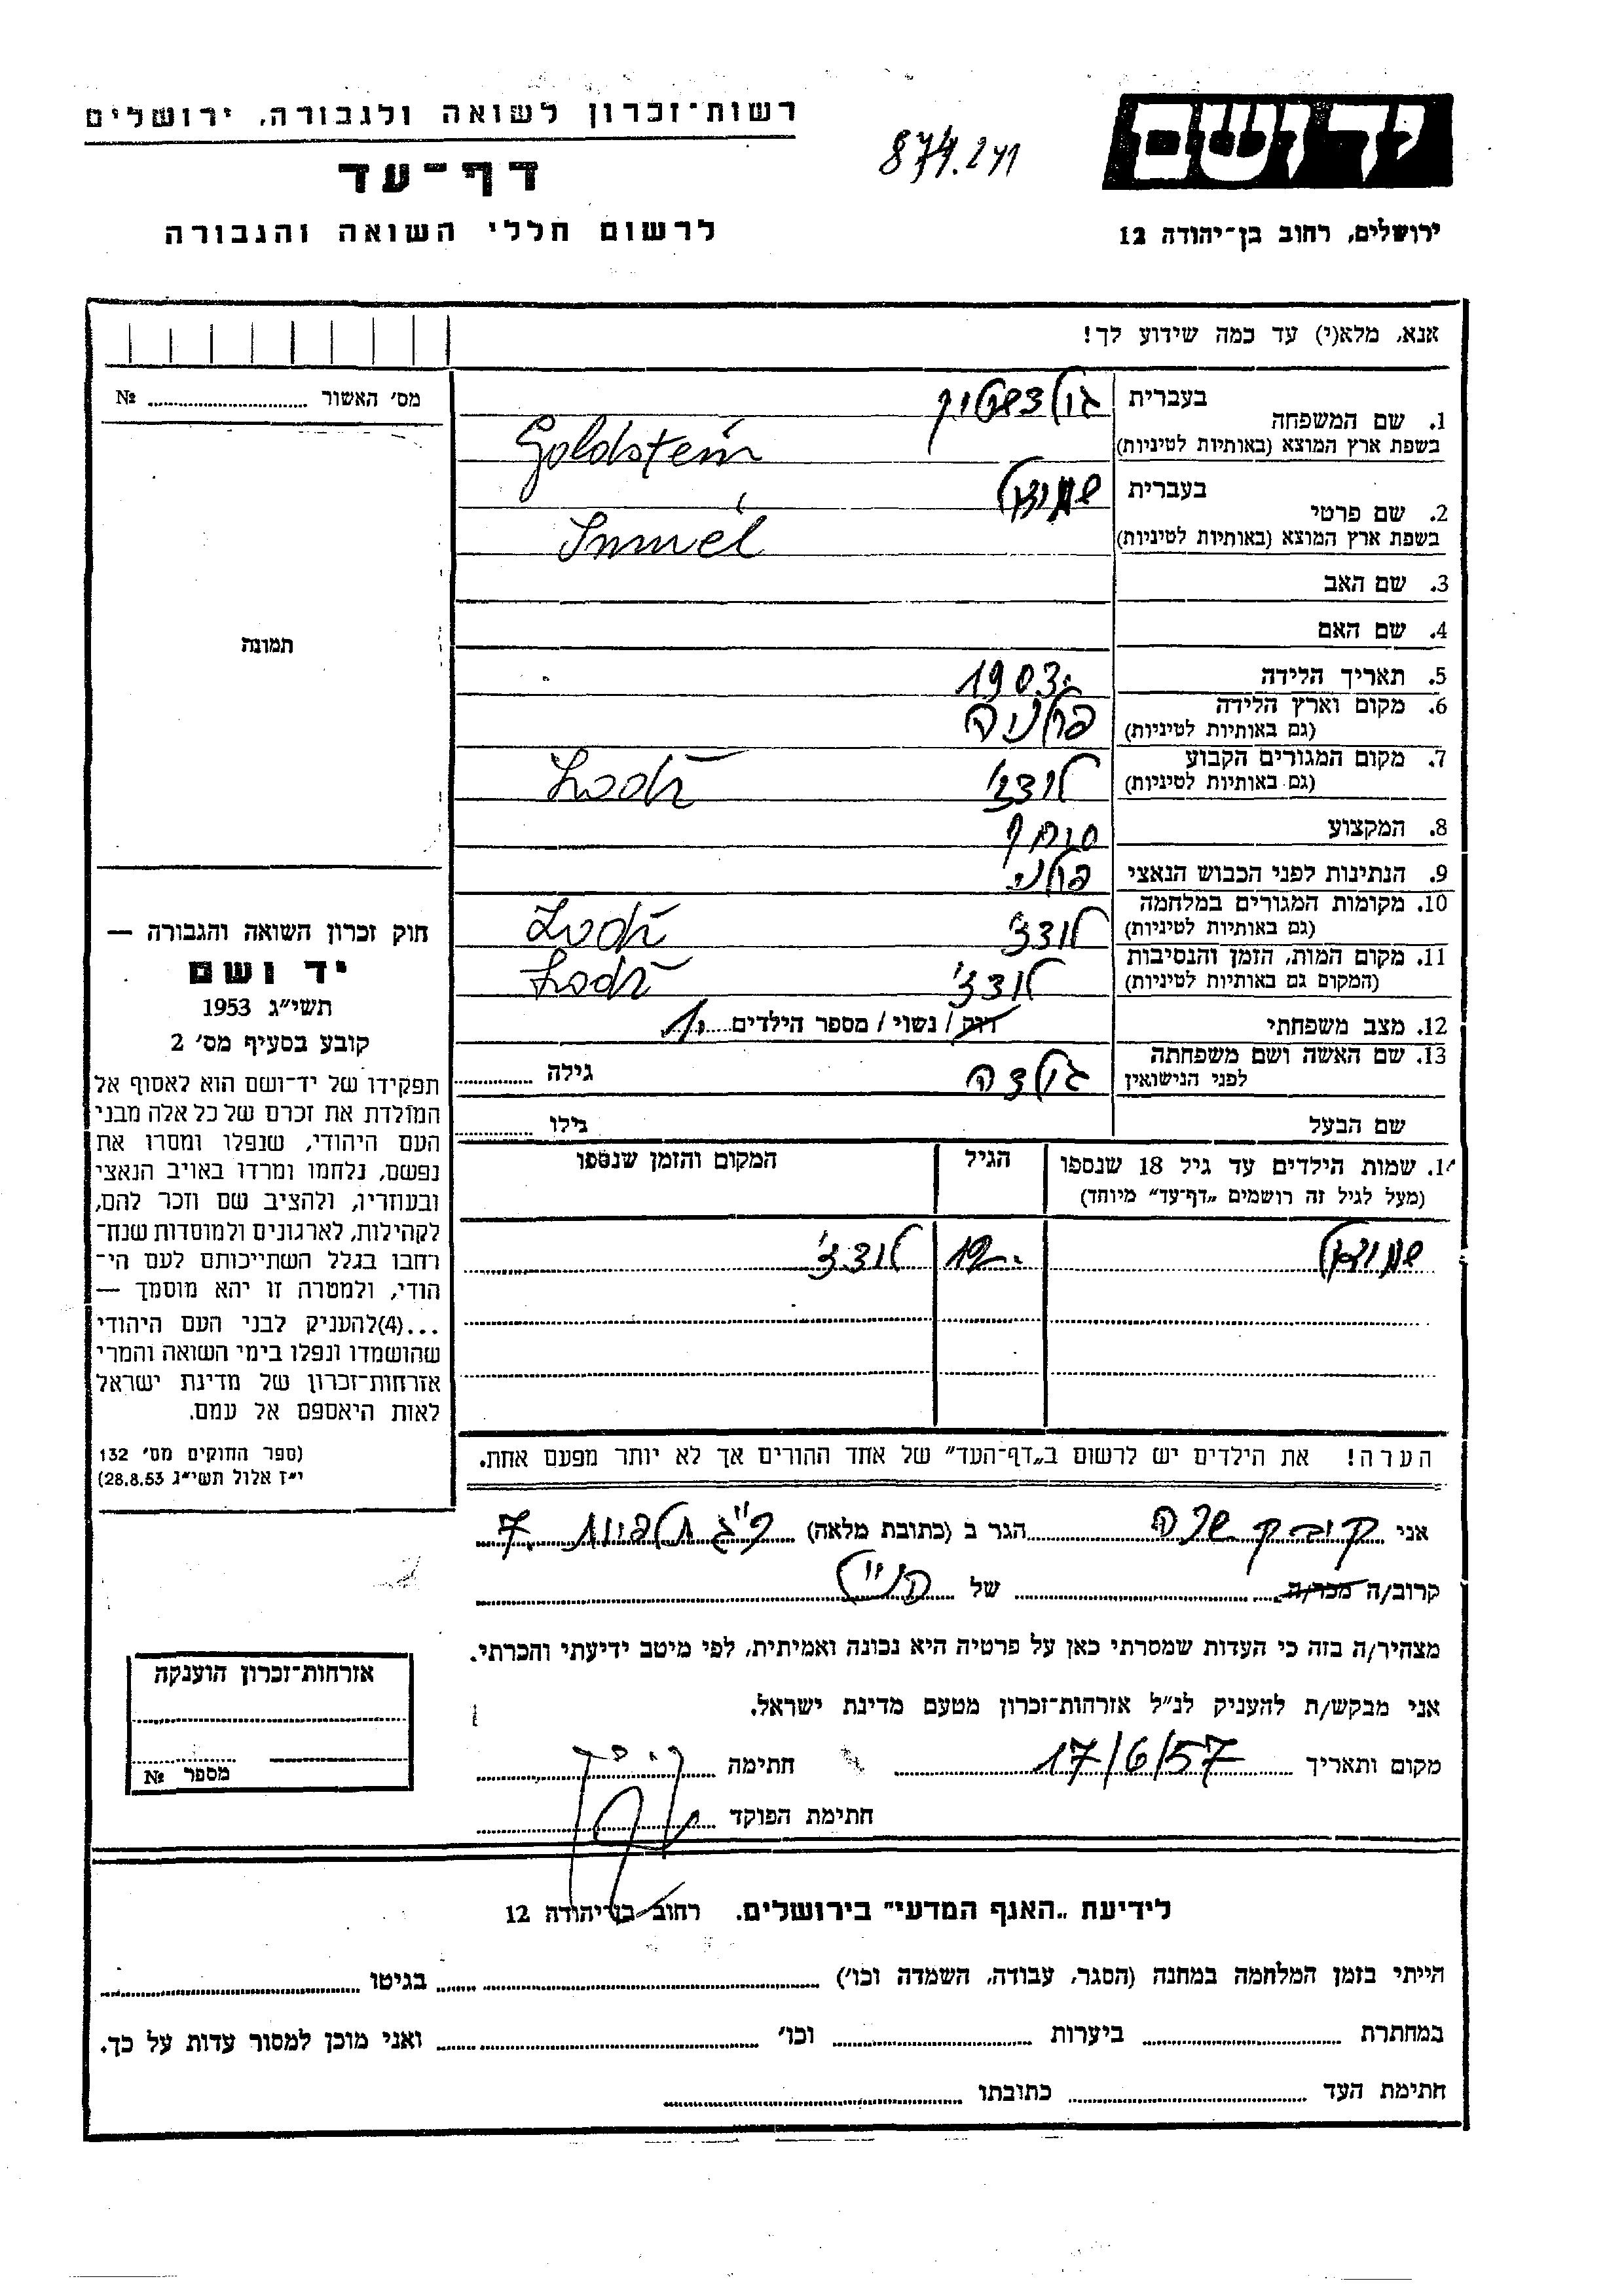 יד ושם
רשות־זכרון לשואה ולגבורה, ירושלים
דף־עד
לרשום חללי השואה והגבורה
ירושלים, רחוב בן־יהודה 12
אנא, מלא(י) עד כמה שידוע לך!
מס' האשור № 
1. שם המשפחה
בעברית גולדשטיין
בשפת ארץ המוצא (באותיות לטיניות) Goldstein
2. שם פרטי
בעברית שמואל
בשפת ארץ המוצא (באותיות לטיניות) Smuel
3. שם האב
4. שם האם
5. תאריך הלידה 1903
6. מקום וארץ הלידה
(גם באותיות לטיניות) פולניה
7. מקום המגורים הקבוע
(גם באותיות לטיניות) לודז' Lodź
8. המקצוע סוחר
9. הנתינות לפני הכבוש הנאצי פולני
10. מקומות המגורים במלחמה
(גם באותיות לטיניות) לודז' Lodź
11. מקום המות, הזמן והנסיבות
(המקום גם באותיות לטיניות) לודז' Lodź
12. מצב משפחתי רוק / נשוי / מספר הילדים 1
13. שם האשה ושם משפחתה
לפני הנישואין גולדה גילה
שם הבעל גילו
14. שמות הילדים עד גיל 18 שנספו הגיל המקום והזמן שנספו
(מעל לגיל זה רושמים „דף־עד" מיוחד)
שמואל לודז'
הערה! את הילדים יש לרשום ב„דף־העד" של אחד ההורים אך לא יותר מפעם אחת.
תמונה
חוק זכרון השואה והגבורה —
יד ושם
תשי"ג 1953
קובע בסעיף מס' 2
תפקידו של יד־ושם הוא לאסוף אל
המולדת את זכרם של כל אלה מבני
העם היהודי, שנפלו ומסרו את
נפשם, נלחמו ומרדו באויב הנאצי
ובעוזריו, ולהציב שם וזכר להם,
לקהילות, לארגונים ולמוסדות שנח־
רבו בגלל השתייכותם לעם הי־
הודי, ולמטרה זו יהא מוסמך —
...(4)להעניק לבני העם היהודי
שהושמדו ונפלו בימי השואה והמרי
אזרחות־זכרון של מדינת ישראל
לאות היאספם אל עמם.
(ספר החוקים מס' 132
י"ז אלול תשי"ג 28.8.53)
אני קובק שרה הגר ב (כתובת מלאה) ר"ג תלפיות 7
קרוב/ה מכר/ה של הנ"ל
מצהיר/ה בזה כי העדות שמסרתי כאן על פרטיה היא נכונה ואמיתית, לפי מיטב ידיעתי והכרתי.
אני מבקש/ת להעניק לנ"ל אזרחות־זכרון מטעם מדינת ישראל.
מקום ותאריך 17/6/57 חתימה
חתימת הפוקד
אזרחות־זכרון הוענקה
מספר №
לידיעת „האגף המדעי" בירושלים. רחוב בן־יהודה 12
הייתי בזמן המלחמה במחנה (הסגר, עבודה, השמדה וכו') בגיטו
במחתרת ביערות וכו' ואני מוכן למסור עדות על כך.
חתימת העד כתובתו